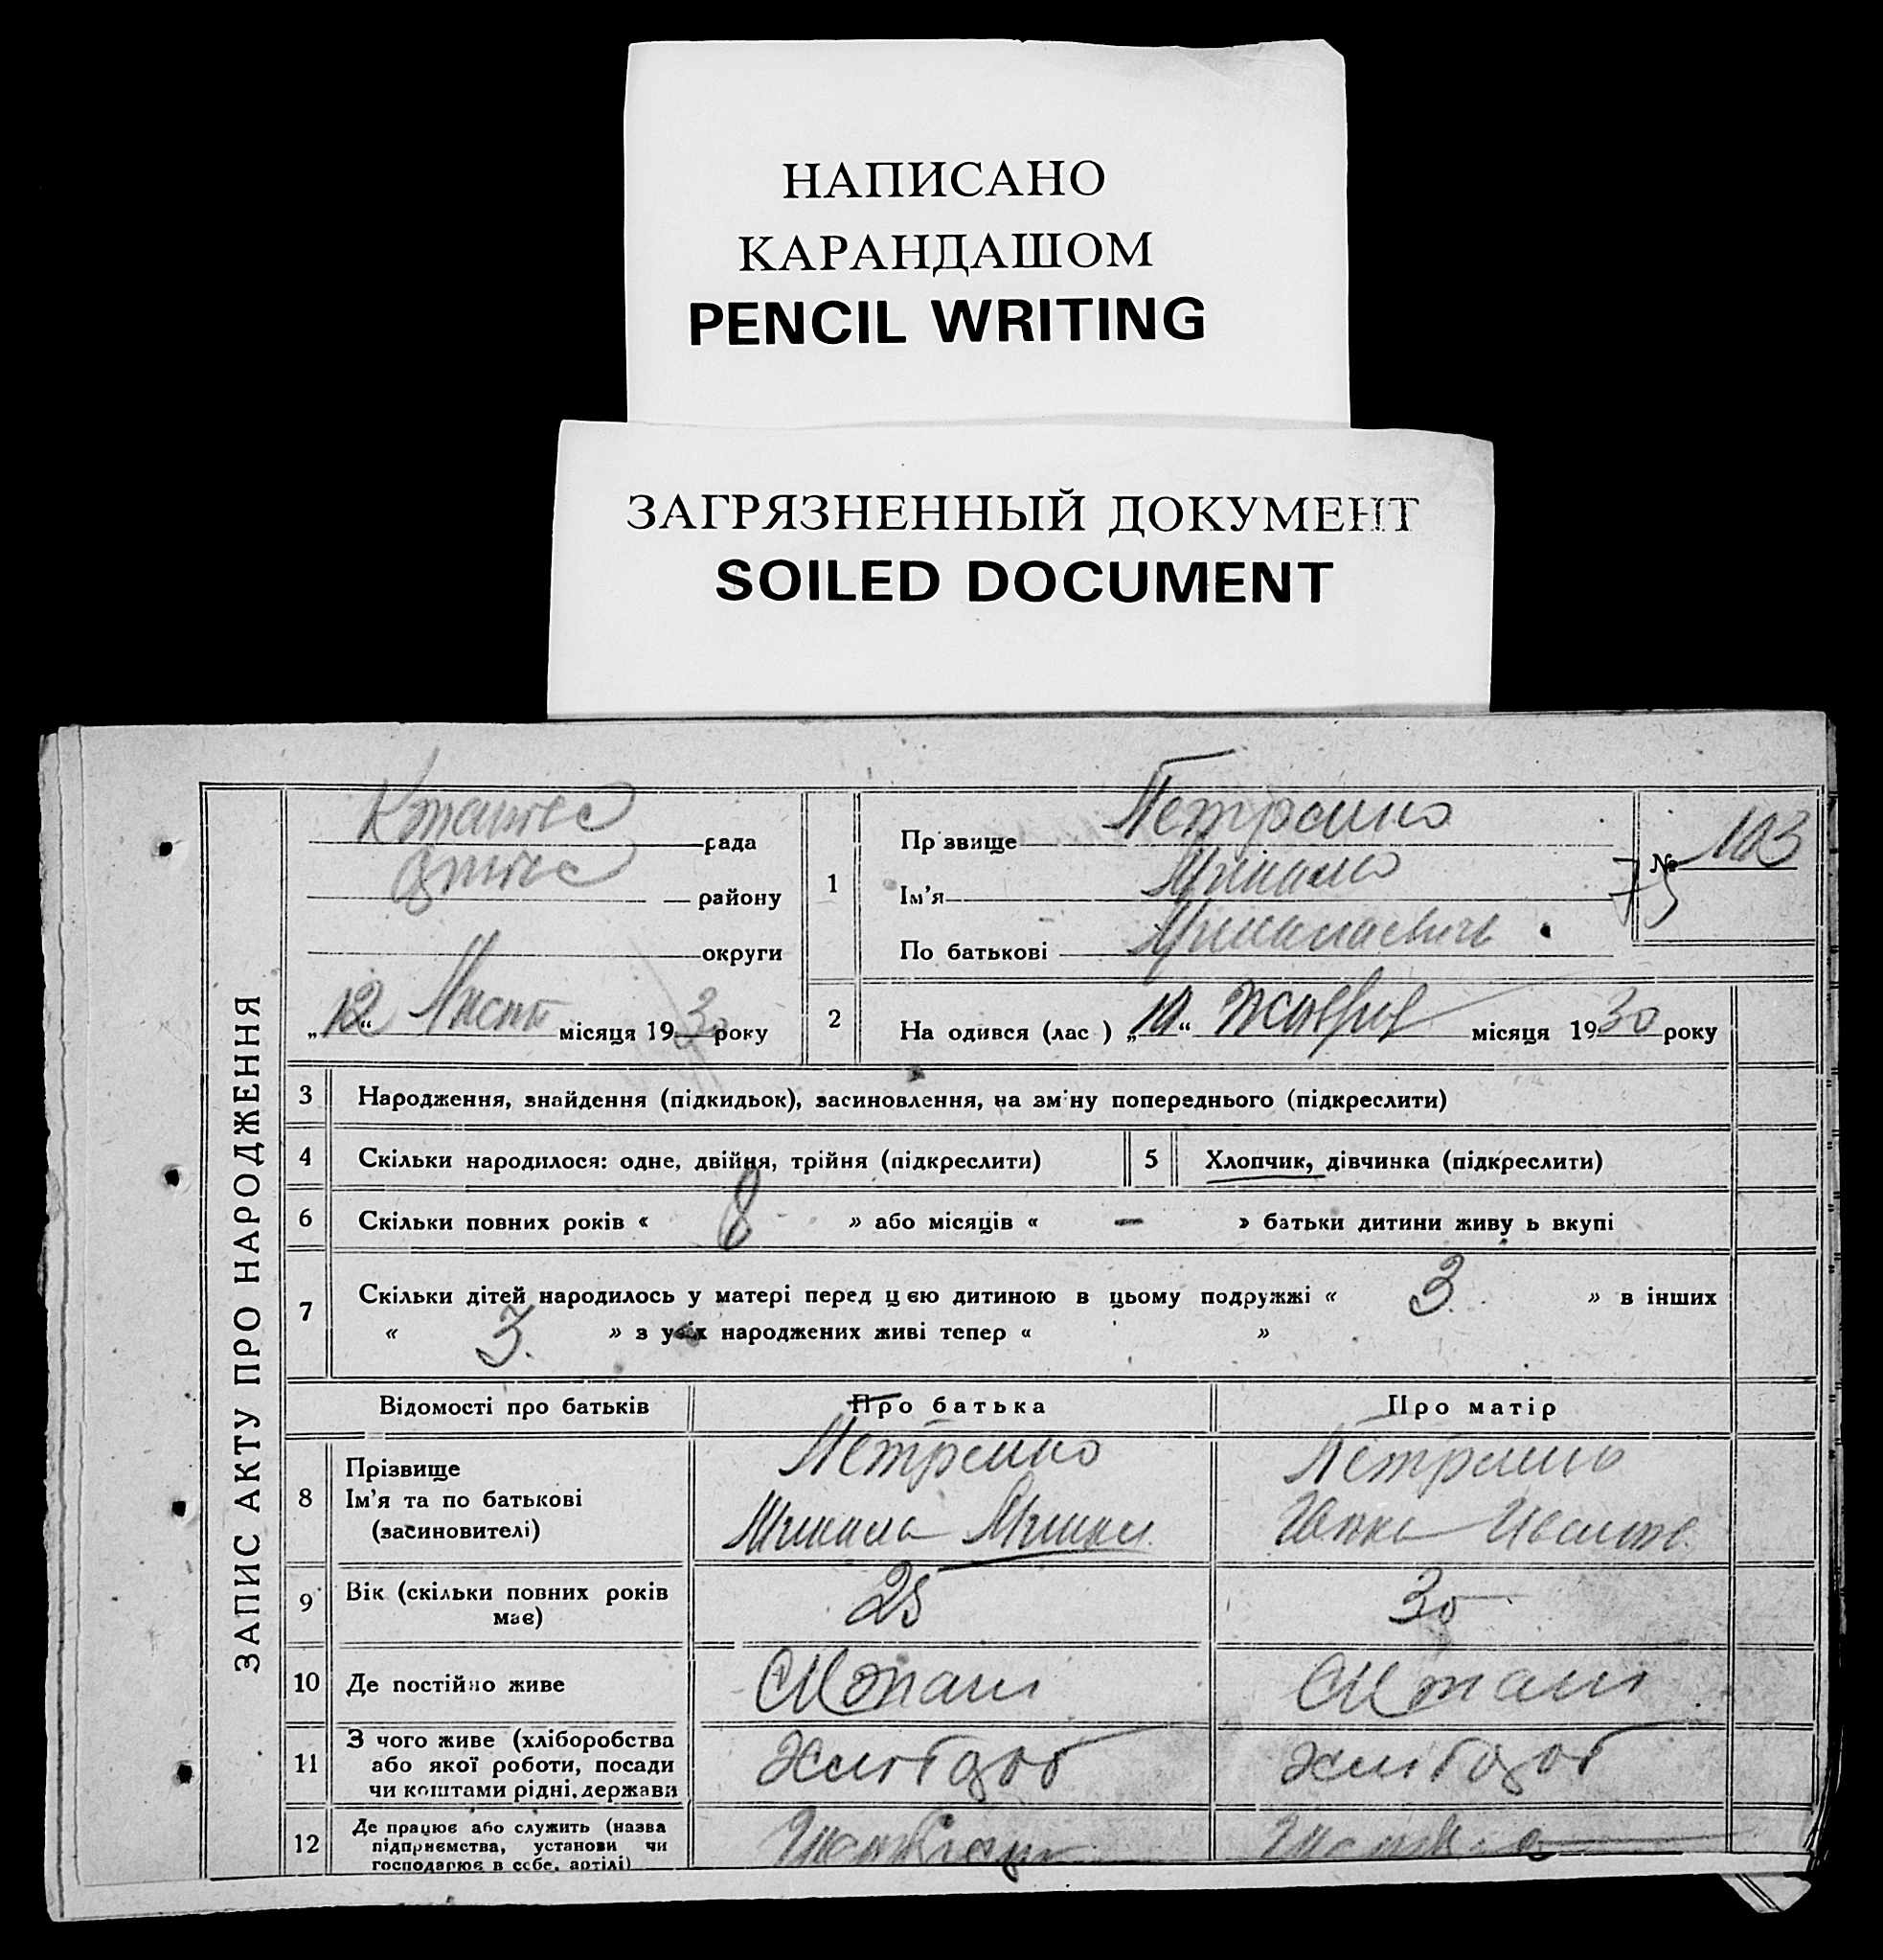 НАПИСАНО
КАРАНДАШОМ
PENCIL WRITING
ЗАГРЯЗНЕННЫЙ ДОКУМЕНТ
SOILED DOCUMENT
ЗАПИС АКТУ ПРО НАРОДЖЕННЯ
рада
району
округи
„12“ Лист місяця 1930 року
1
Пр звище Петренко
Ім'я Михайло
По батькові Михайлаевичь
№ 103
75
2
На одився (лас ) „10“ Жовтня місяця 1930 року
3 Народження, знайдення (підкидьок), засиновлення, на зм ну попереднього (підкреслити)
4 Скільки народилося: одне, двійня, трійня (підкреслити)
5 Хлопчик, дівчинка (підкреслити)
6 Скільки повних років « 8 » або місяців « — » батьки дитини живу ь вкупі
7 Скільки дітей народилось у матері перед ц ею дитиною в цьому подружжі « 3 » в інших
« 3. » з усіх народжених живі тепер « »
Відомості про батьків Про батька Про матір
8 Прізвище
Ім'я та по батькові
(засиновителі)
Петренко
Михайло Михай
Петренко
9 Вік (скільки повних років
має)
25
30
10 Де постійно живе
11 З чого живе (хліборобства
або якої роботи, посади
чи коштами рідні, держави
12 Де працює або служить (назва
підприємства, установи чи
господарює в себе, артілі)